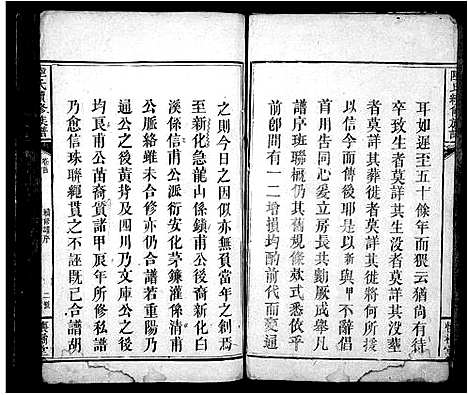 耳如遲至五十餘年而猥云猶尚有待
卒致生者莫詳其生沒者莫詳其沒葬
者莫詳其葬徙者莫詳其徙將何所據
以信今而傳後耶是以新與甲不辭辭
首用告同心爰立房長共勷厥成舉凡
譜序班聯槪仍其舊規條款式悉依乎
前郎間有一二增損均酌前代而變通
之則今日之因似亦無貧當年之創焉
至新化急龍山係鎮甫公後裔新化白
溪係信甫公派衍安化茅鐮灌係清甫
公脈絡雖未合修亦仍合譜若重陽乃
通公之後黃背及四川乃文庫公之後
均艮甫公苗裔賣諸甲辰年所修私譜
乃愈信珠聯繩貫之不誣既已合譜胡
卷首
續修譜序
二